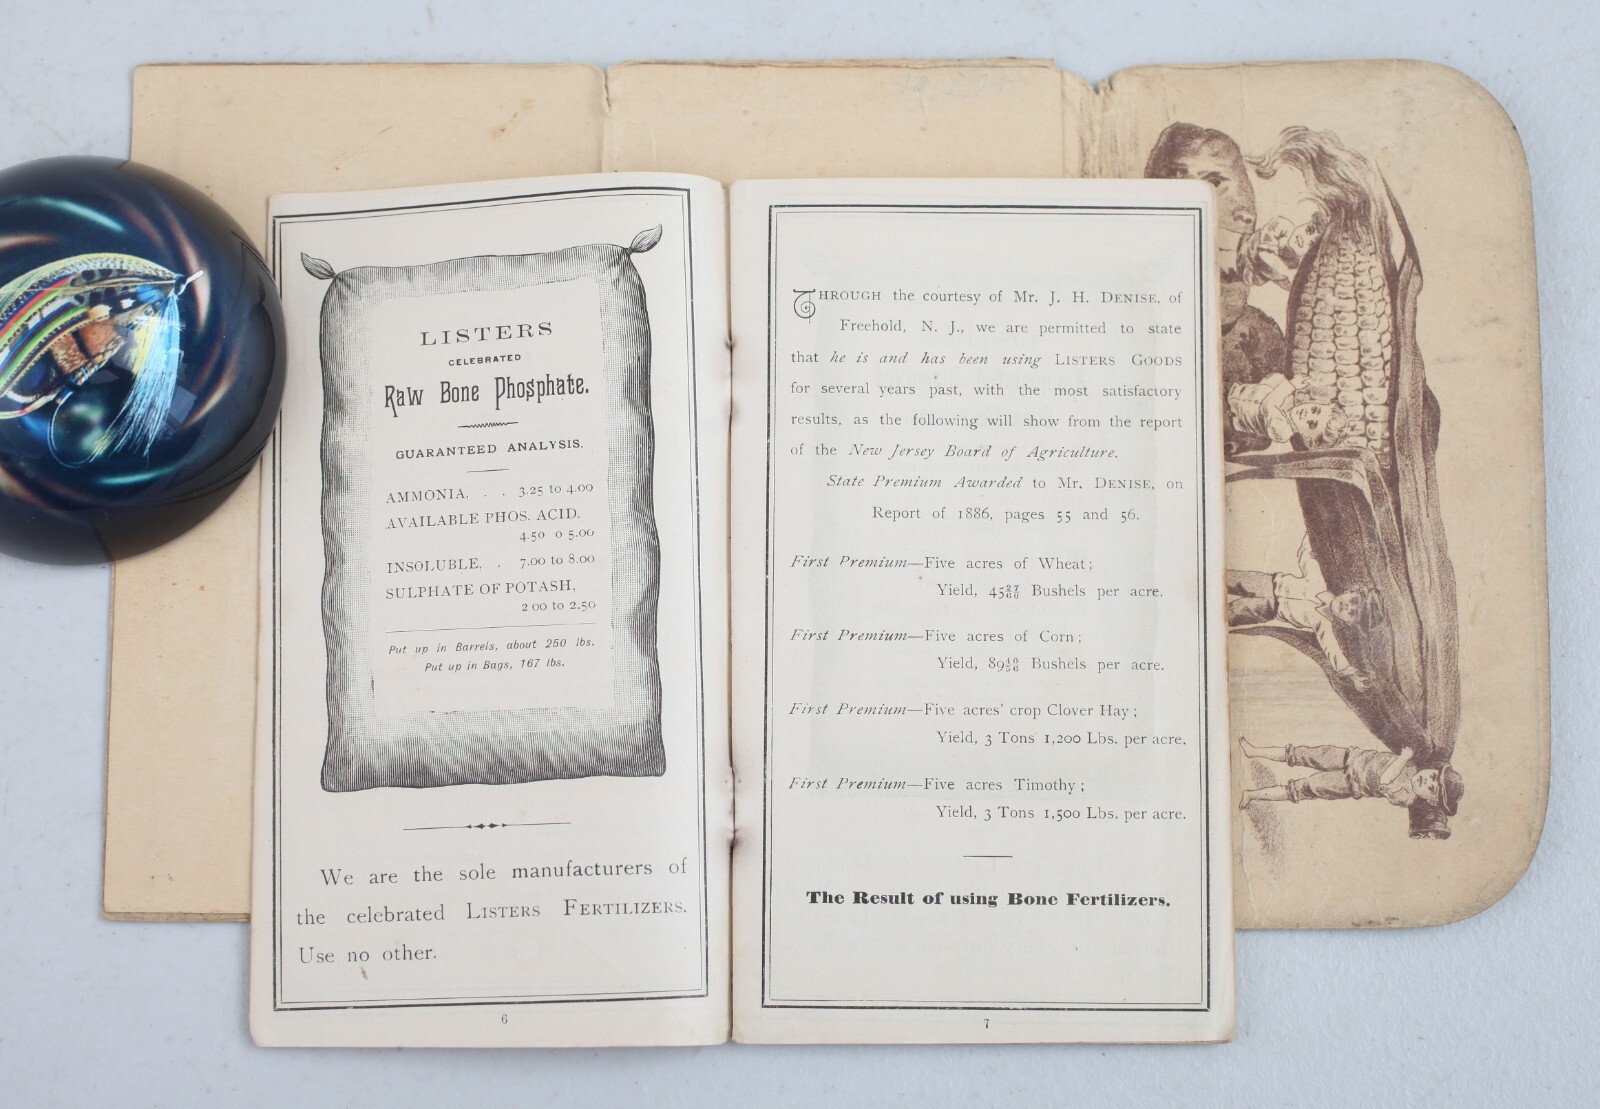 LISTERS
CELEBRATED
Raw Bone Phosphate.
GUARANTEED ANALYSIS.
AMMONIA, . . 3.25 to 4.00
AVAILABLE PHOS. ACID,
4.50 o 5.00
INSOLUBLE, . 7.00 to 8.00
SULPHATE OF POTASH,
2 00 to 2.50
Put up in Barrels, about 250 lbs.
Put up in Bags, 167 lbs.
We are the sole manufacturers of
the celebrated LISTERS FERTILIZERS.
Use no other.
6
THROUGH the courtesy of Mr. J. H. DENISE, of
Freehold, N. J., we are permitted to state
that he is and has been using LISTERS GOODS
for several years past, with the most satisfactory
results, as the following will show from the report
of the New Jersey Board of Agriculture.
State Premium Awarded to Mr. DENISE, on
Report of 1886, pages 55 and 56.
First Premium—Five acres of Wheat;
Yield, 45 27/60 Bushels per acre.
First Premium—Five acres of Corn;
Yield, 89 40/56 Bushels per acre.
First Premium—Five acres' crop Clover Hay;
Yield, 3 Tons 1,200 Lbs. per acre.
First Premium—Five acres Timothy;
Yield, 3 Tons 1,500 Lbs. per acre.
The Result of using Bone Fertilizers.
7